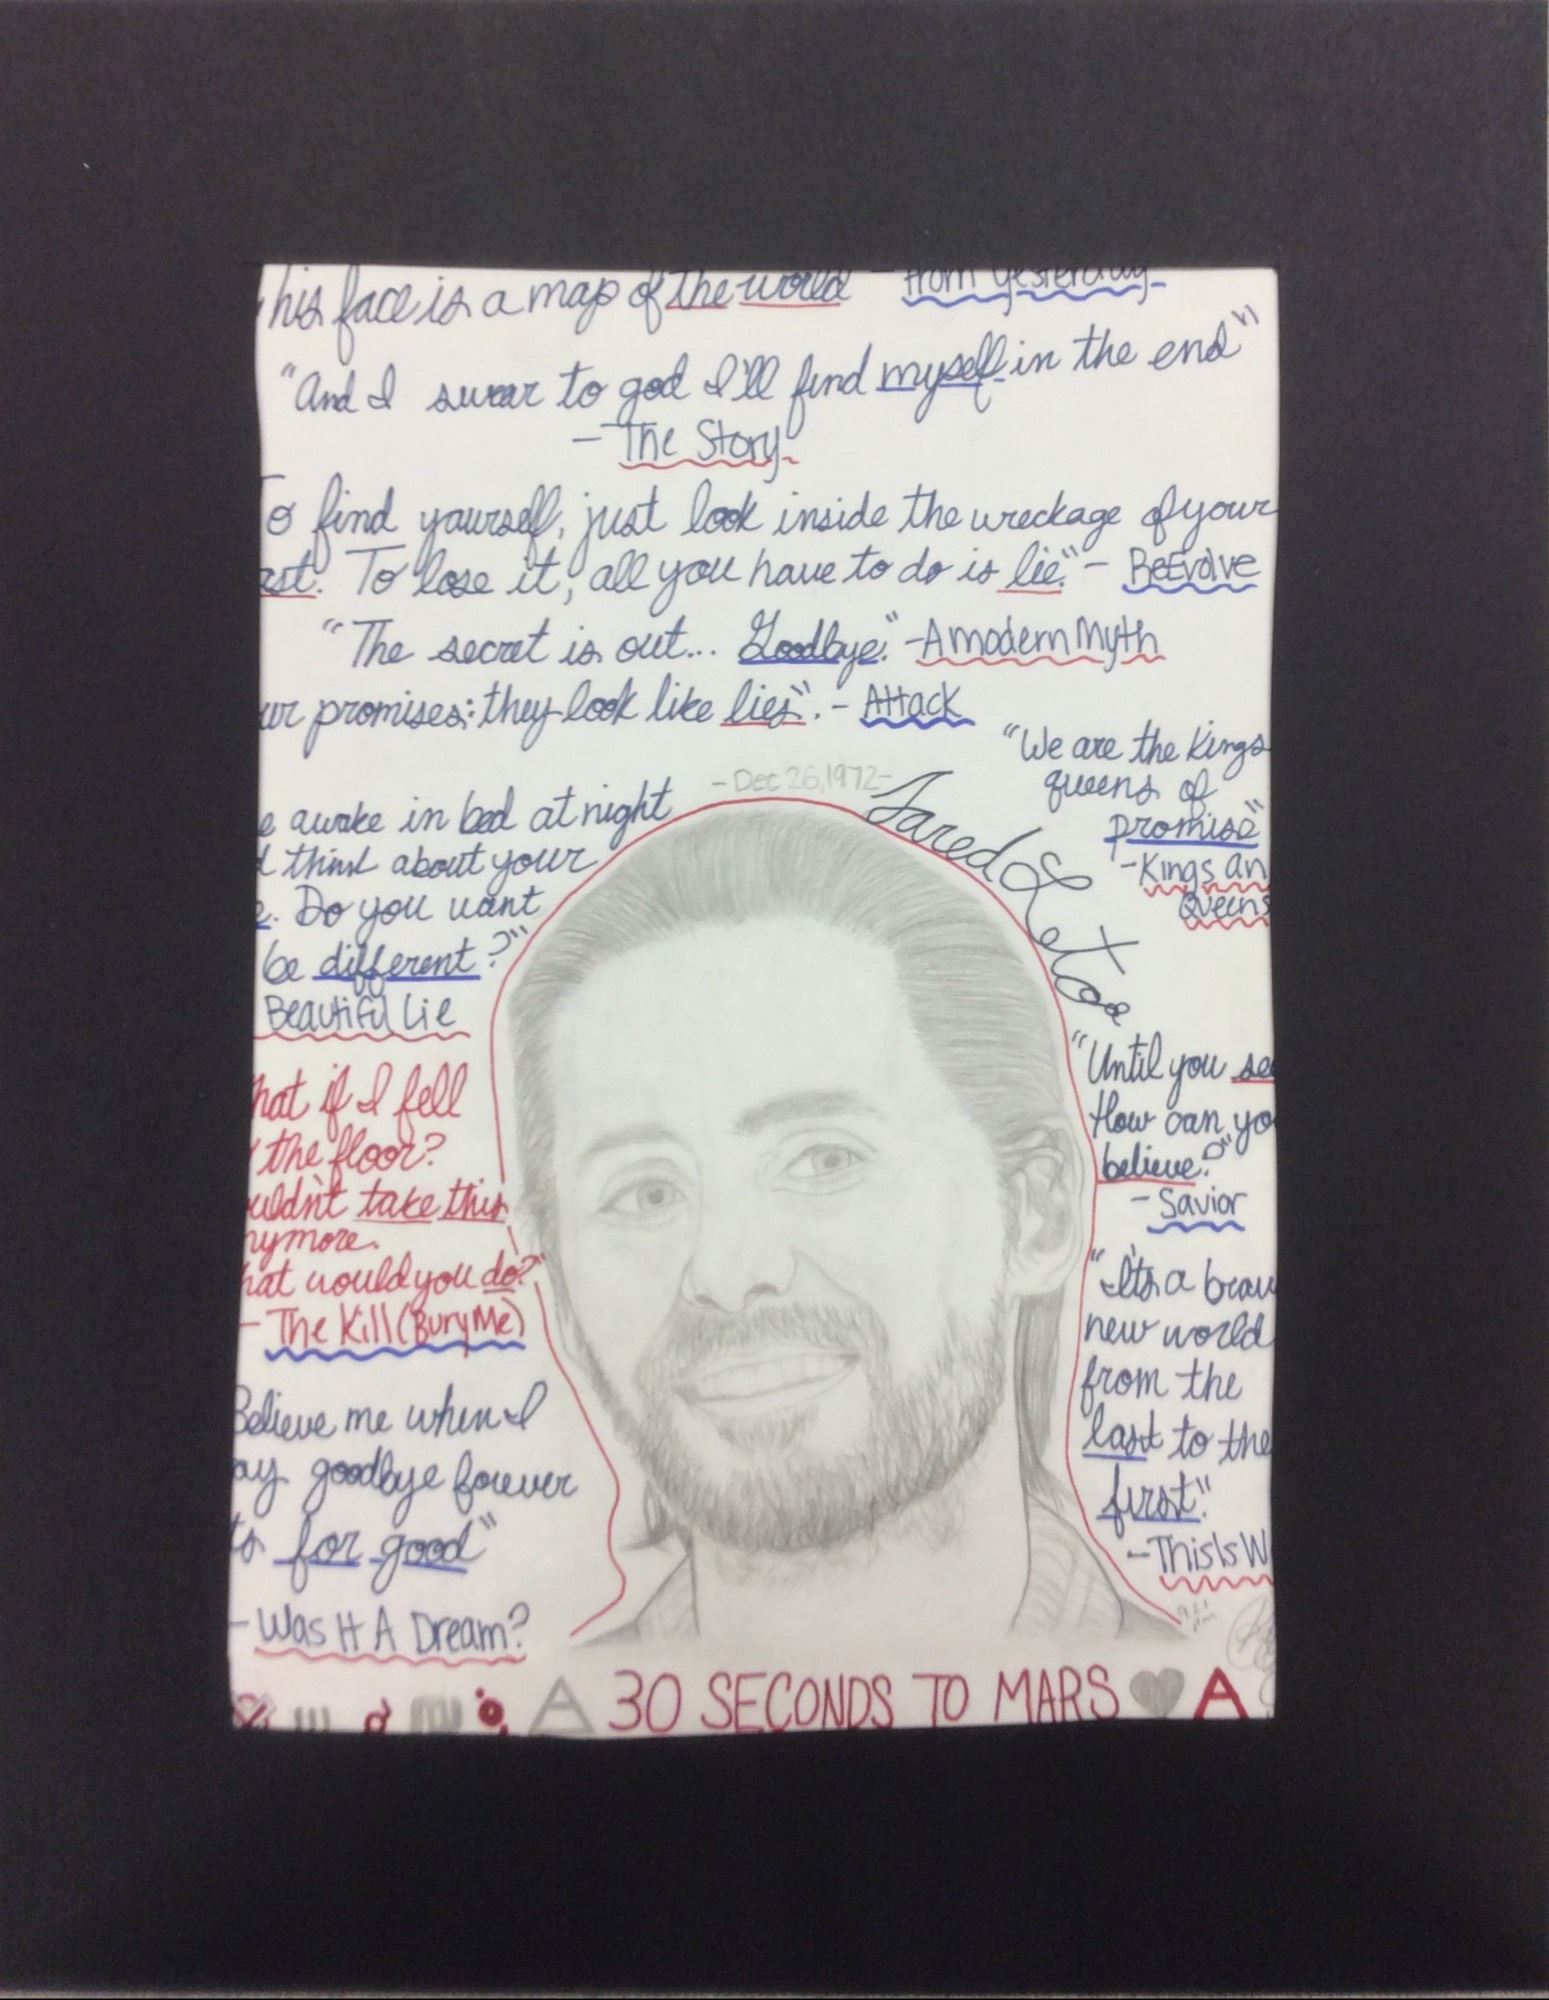 his face is a map of the world - from yesterday
"And I swear to god I'll find myself in the end"
- The Story
To find yourself, just look inside the wreckage of your
ast. To lose it, all you have to do is lie." - R-Evolve
"The secret is out... Goodbye." - A modern Myth
ur promises: they look like lies". - Attack
"We are the Kings
queens of
promise"
- Kings an
Queens
- Dec 26, 1972 -
Jared Leto
e awake in bed at night
d think about your
e. Do you want
be different?"
Beautiful Lie
hat if I fell
the floor?
uldn't take this
nymore.
hat would you do?"
- The Kill (Bury Me)
Believe me when I
ay goodbye forever
ts for good"
- Was It A Dream?
"Until you se
How can yo
believe?"
- Savior
"It's a brav
new world
from the
last to the
first"
- This Is W
30 SECONDS TO MARS